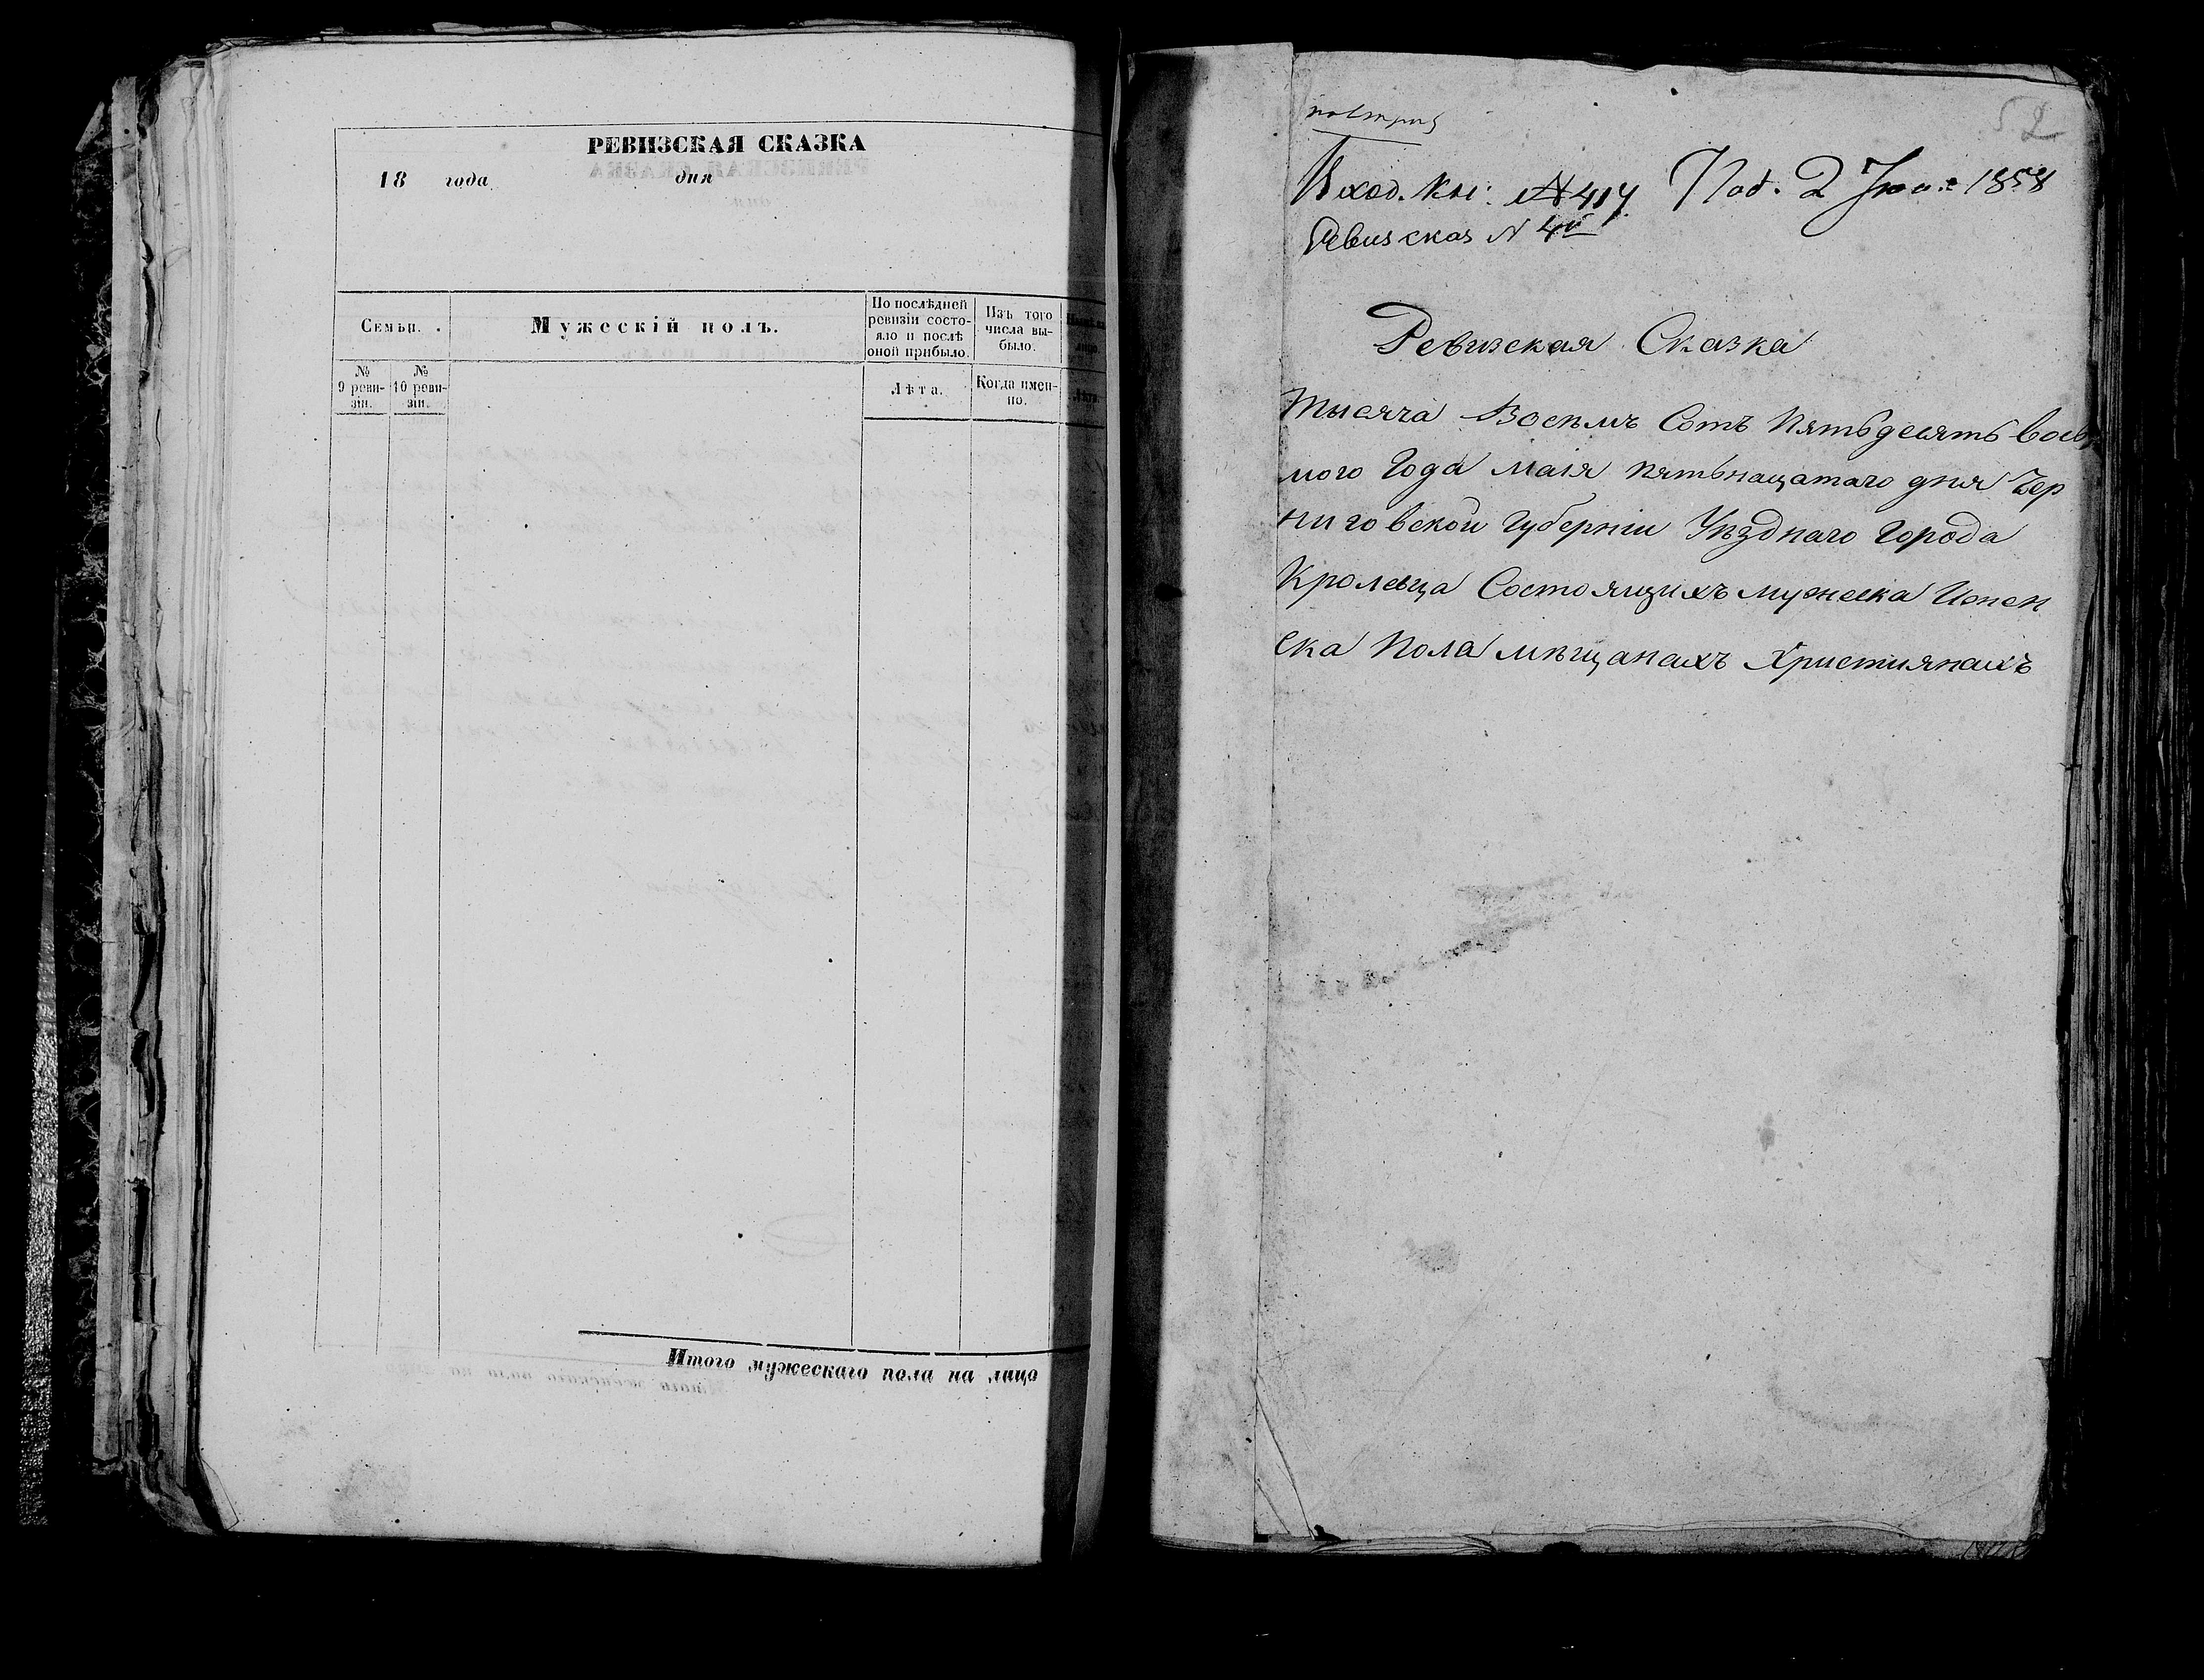 РЕВИЗСКАЯ СКАЗКА
18 года дня
Семьи.
Мужескій полъ.
По послѣдней ревизіи состо-
яло и послѣ
оной прибыло.
Изъ того
числа вы-
было.
№
9 реви-
зіи.
№
10 реви-
зіи.
Лѣта.
Когда имен-
но.
Итого мужескаго пола на лицо
52
Вход. Кн: № 417 Под. 2 Іюня 1858
Ревиз сказ N 4й
Ревизская Сказка
Тысяча Восемъ Сотъ Пятьдесятъ вось
мого Года маія пятьнацатаго дня Чер
ниговской Губерніи Уѣзднаго Города
Кролевца Состоящихъ мужеска Ижен
ска Пола мѣщанахъ Християнахъ